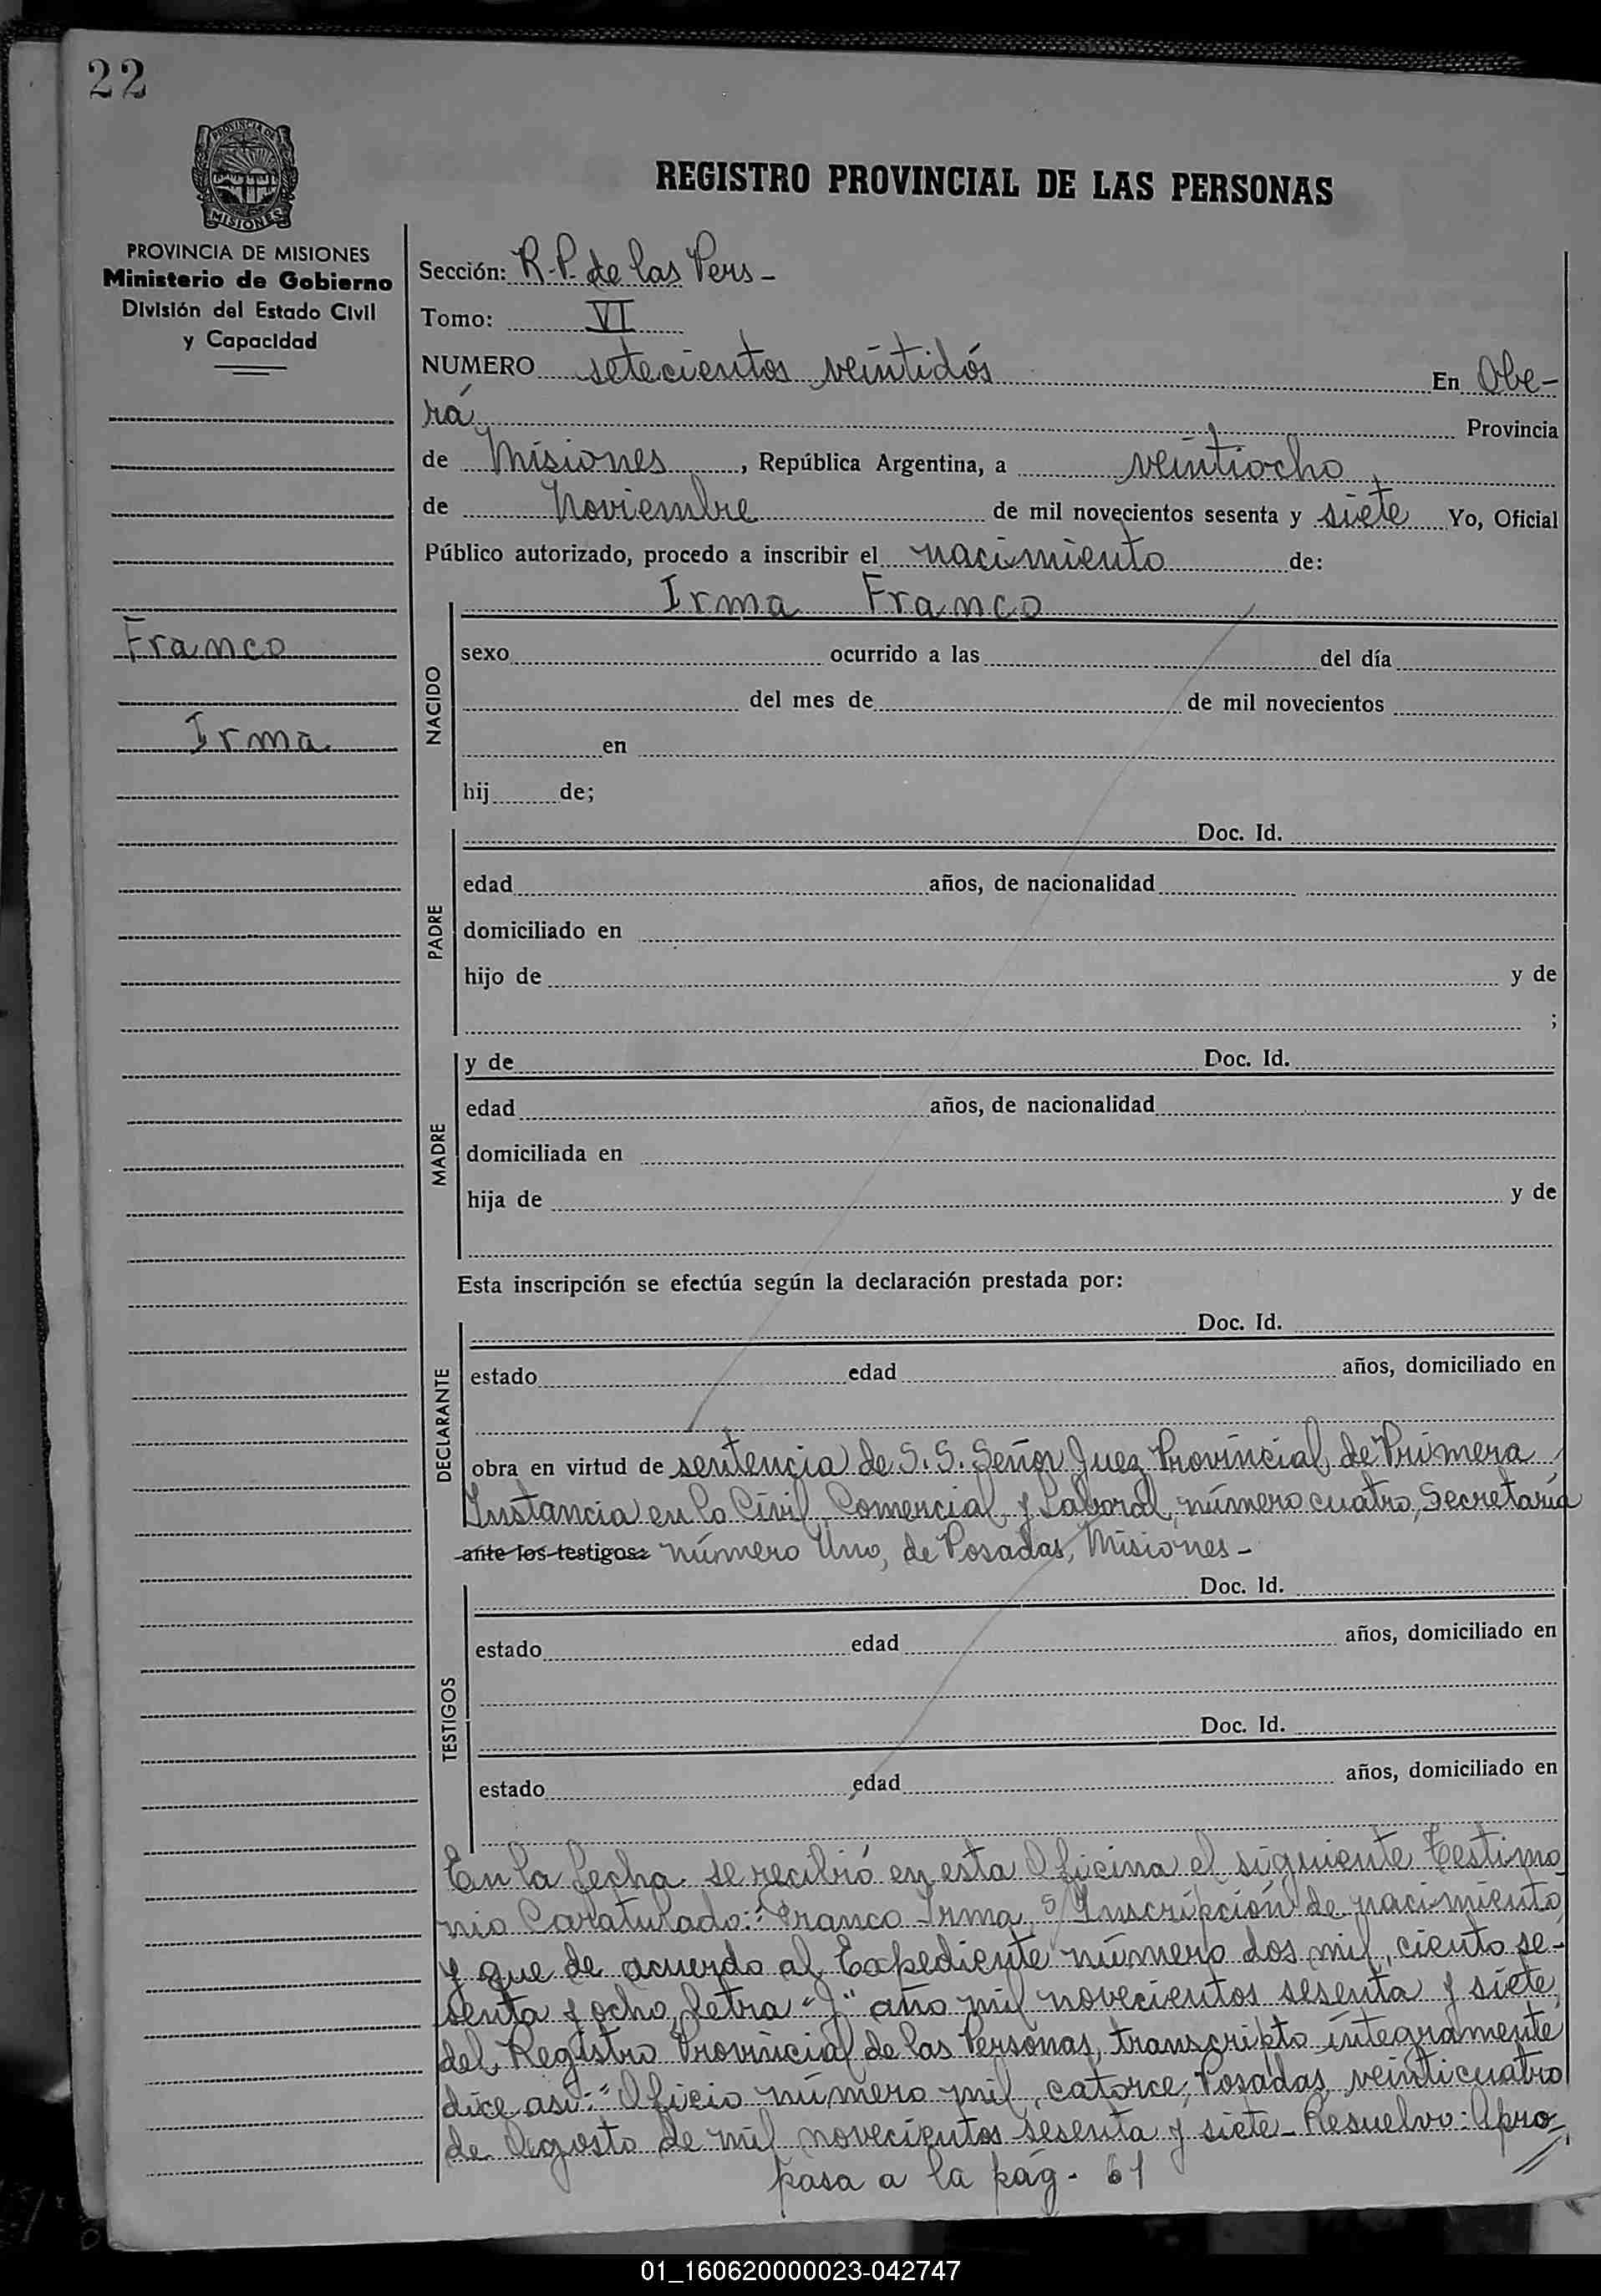 22
PROVINCIA DE
MISIONES
REGISTRO PROVINCIAL DE LAS PERSONAS
PROVINCIA DE MISIONES
Ministerio de Gobierno
División del Estado Civil
y Capacidad
Franco
Irma
Sección: R.P. de las Pers-
Tomo: VI
NUMERO setecientos veintidós En Obe-
rá Provincia
de Misiones, República Argentina, a veintiocho
de Noviembre de mil novecientos sesenta y siete Yo, Oficial
Público autorizado, procedo a inscribir el nacimiento de:
NACIDO
Irma Franco
sexo ocurrido a las del día
del mes de de mil novecientos
en
hij de;
PADRE
Doc. Id.
edad años, de nacionalidad
domiciliado en
hijo de y de
;
MADRE
y de Doc. Id.
edad años, de nacionalidad
domiciliada en
hija de y de
Esta inscripción se efectúa según la declaración prestada por:
DECLARANTE
Doc. Id.
estado edad años, domiciliado en
obra en virtud de sentencia de S.S. Señor Juez Provincial de Primera
Instancia en lo Civil, Comercial y Laboral, número cuatro, Secretaría
ante los testigos: número Uno, de Posadas, Misiones-
TESTIGOS
Doc. Id.
estado edad años, domiciliado en
Doc. Id.
estado edad años, domiciliado en
En la fecha se recibió en esta Oficina el siguiente Testimo
nio Caratulado: "Franco Irma, s/ Inscripción de nacimiento,
y que de acuerdo al Expediente número dos mil, ciento se-
senta y ocho, letra "J" año mil novecientos sesenta y siete,
del Registro Provincial de las Personas, transcripto íntegramente
dice así: "Oficio número mil, catorce; Posadas, veinticuatro
de Agosto de mil novecientos sesenta y siete- Resuelvo: Apro
pasa a la pág. 61
01_160620000023-042747